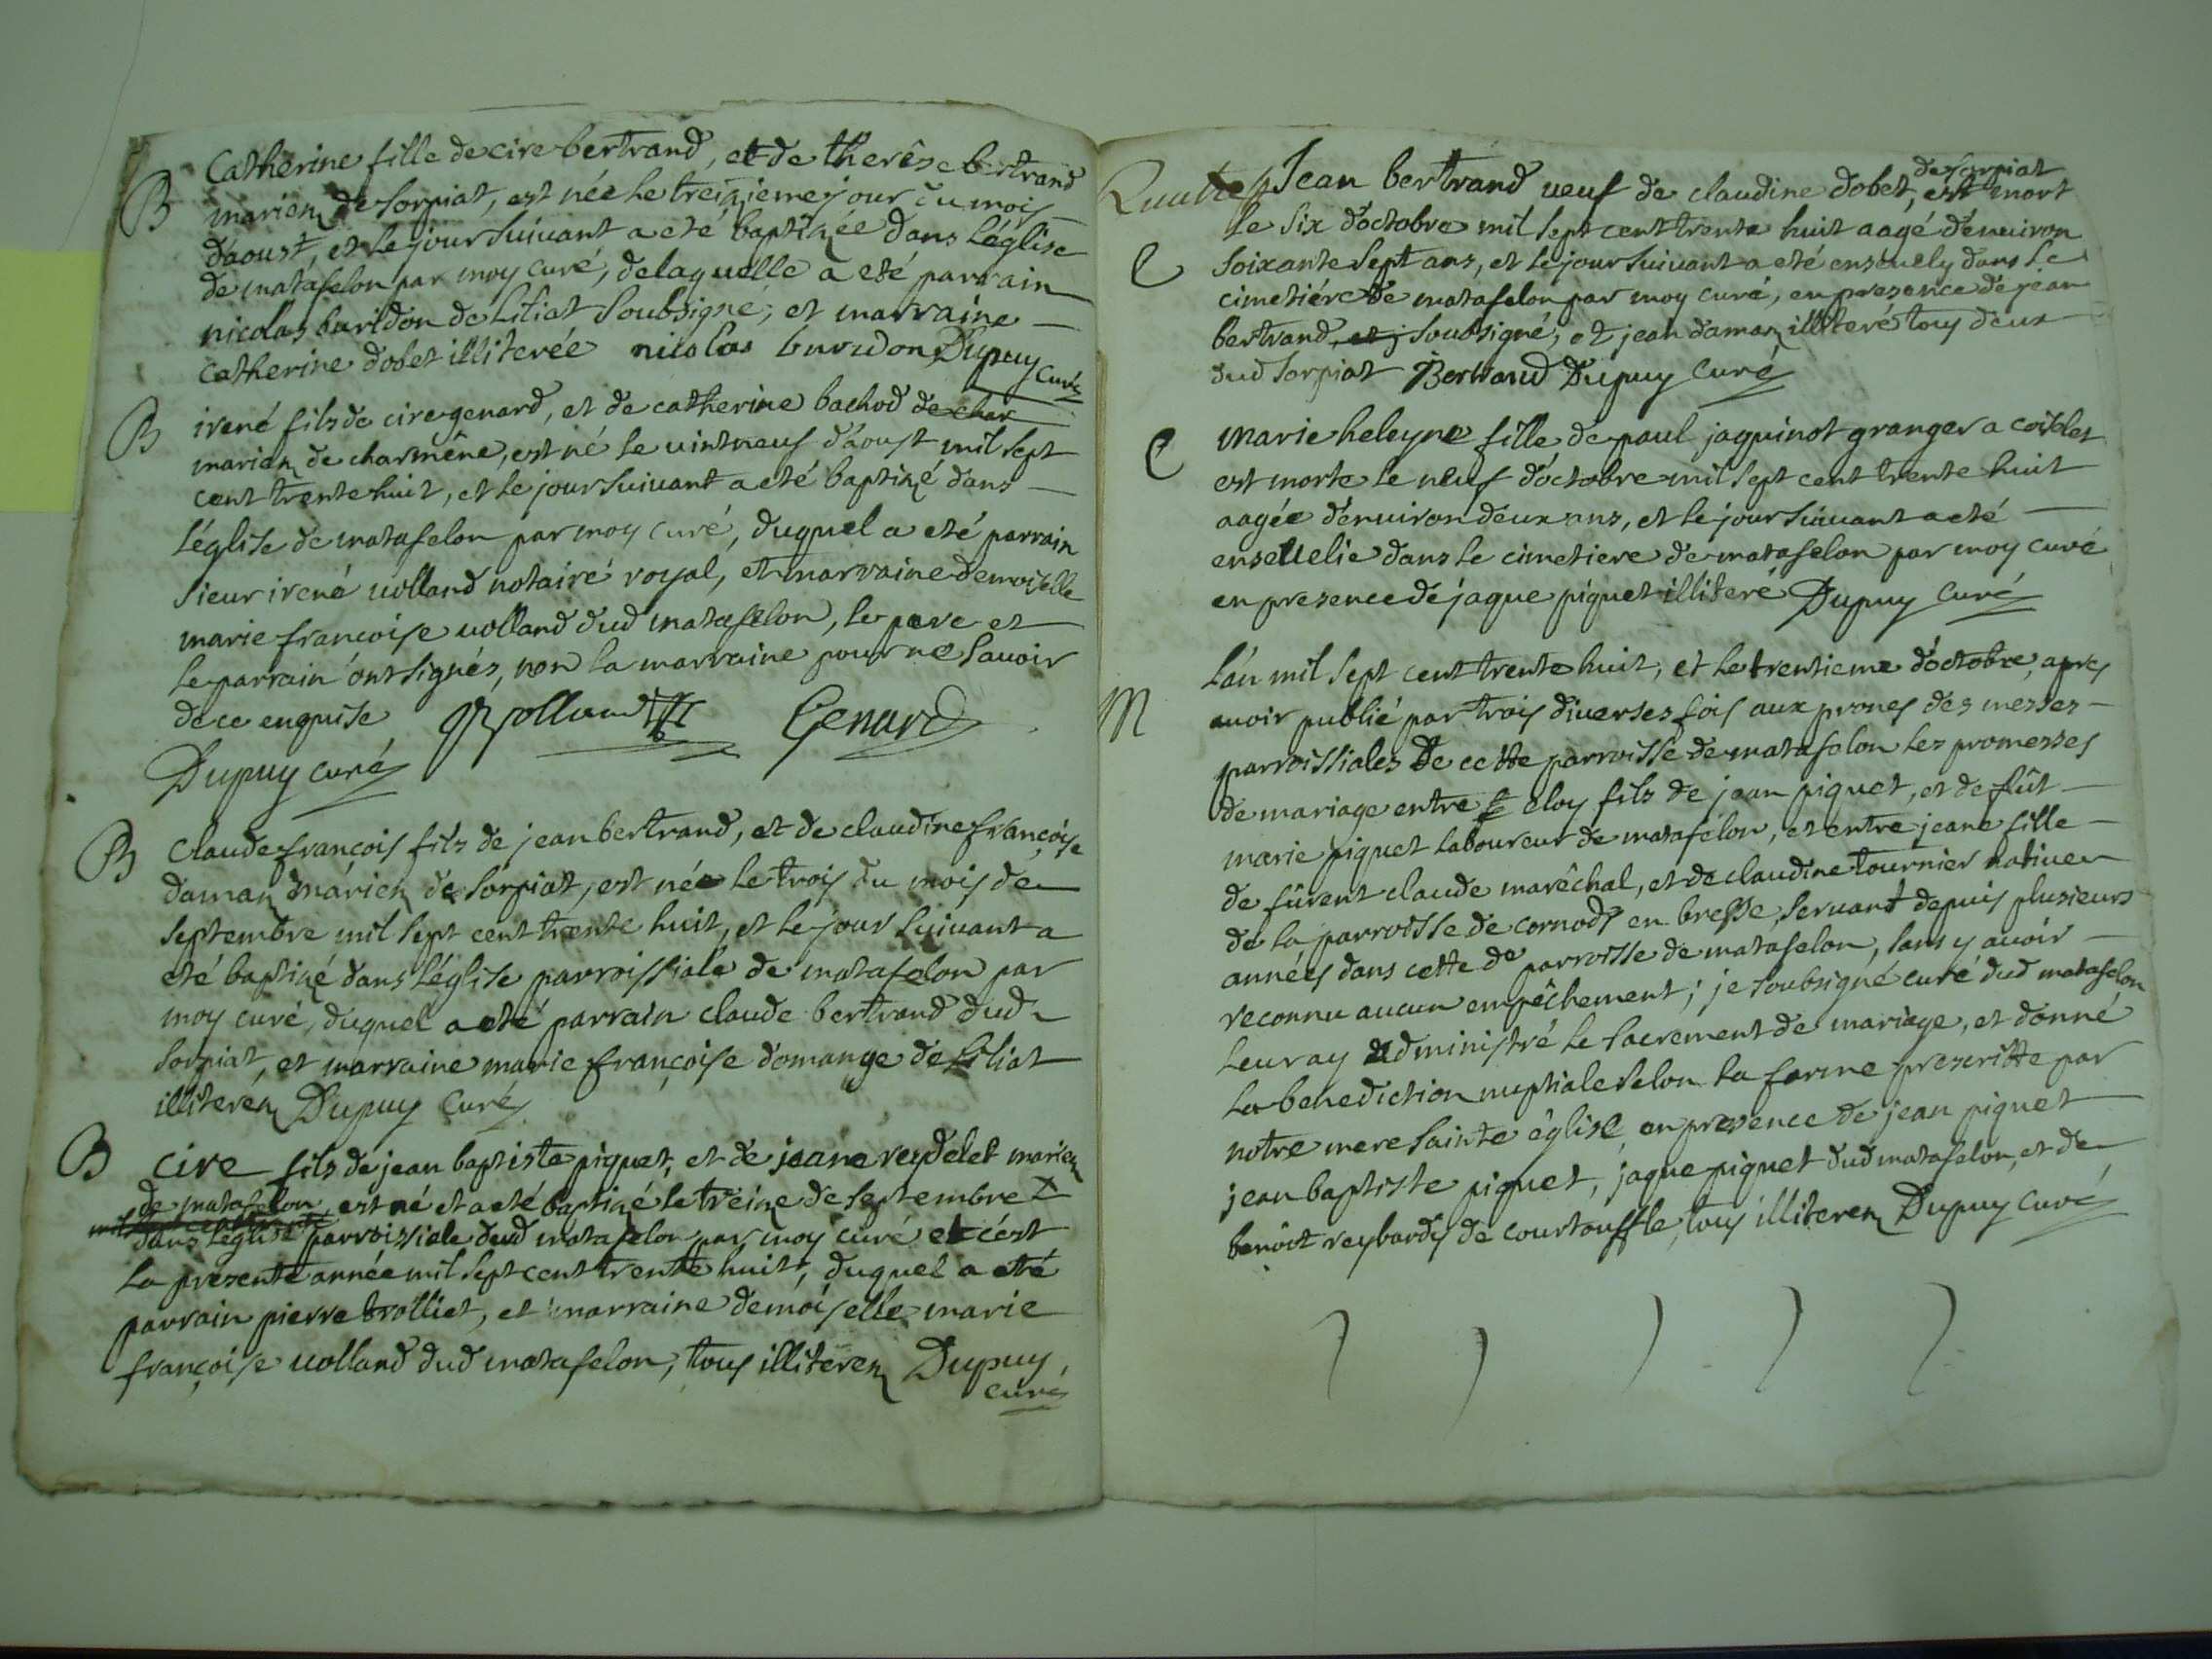 B
Catherine fille de cire bertrand, et de therêse bertrand
mariez de sorpiat, est née le treizieme jour du mois
d'aoust, et le jour suivant a eté baptizée dans l'église
de matafelon par moy curé, de laquelle a eté parrain
nicolas buridon de Litiat soubsigné, et marraine
catherine dobet illiterée nicolas buridon Dupuy curé
B
irené fils de cire genard, et de catherine bachod de char
mariez de charmêne, est né le vintneuf d'aoust mil sept
cent trente huit, et le jour suivant a eté baptizé dans
l'église de matafelon par moy curé, duquel a eté parrain
sieur irené volland notaire royal, et marraine demoiselle
marie francoise volland dud matafelon, le pere et
le parrain ont signés, non la marraine pour ne savoir
de ce enquise Volland Genard
Dupuy curé
B
Claude françois fils de jean bertrand, et de claudine françoise
daman mariez de sorpiat, est née le trois du mois de
septembre mil sept cent trente huit, et le jour suivant a
eté baptizé dans l'église parroissiale de matafelon par
moy curé, duquel a eté parrain claude bertrand dud
sorpiat, et marraine marie françoise domange de Litiat
illiterez Dupuy curé
B
Cire fils de jean baptiste piquet, et de jeane reydelet mariez
de matafelon, est né et a eté baptizé le treize de septembre
mil sept cent trente
dans l'église parroissiale dud matafelon par moy curé et c'est
la presente année mil sept cent trente huit, duquel a eté
parrain pierre brolliet, et marraine demoiselle marie
françoise volland dud matafelon, tous illiterez Dupuy
curé
de sorpiat
Jean bertrand veuf de claudine dobet, est mort
le six d'octobre mil sept cent trente huit aagé d'environ
e
soixante sept ans, et le jour suivant a eté ensevely dans le
cimetiére de matafelon par moy curé, en presence de jean
bertrand, et j soubsigné, et jean daman illiteré tous deux
dud sorpiat Bertrand Dupuy curé
e
marie heleyne fille de paul jaquinot granger a coiselet
est morte le neuf d'octobre mil sept cent trente huit
aagée d'environ deux ans, et le jour suivant a eté
ensevelie dans le cimetiere de matafelon par moy curé
en presence de jaque piquet illiteré Dupuy curé
M
L'an mil sept cent trente huit, et le trentieme d'octobre, apres
avoir publié par trois diverses fois aux prones des messes
parroissiales de cette parroisse de matafelon les promesses
de mariage entre eloy fils de jean piquet, et de fût
marie piquet laboureur de matafelon, et entre jeane fille
de fûrent claude marêchal, et de claudine tournier native
de la parroisse de cornods en bresse, servant depuis plusieurs
années dans cette de parroisse de matafelon, sans y avoir
reconnu aucun empêchement; je soubsigné curé dud matafelon
leur ay administré le sacrement de mariage, et donné
la benediction nuptiale selon la forme prescritte par
notre mere sainte église, en presence de jean piquet
jean baptiste piquet, jaque piquet dud matafelon, et de
benoit reybardy de courtouffle, tous illiterez Dupuy curé